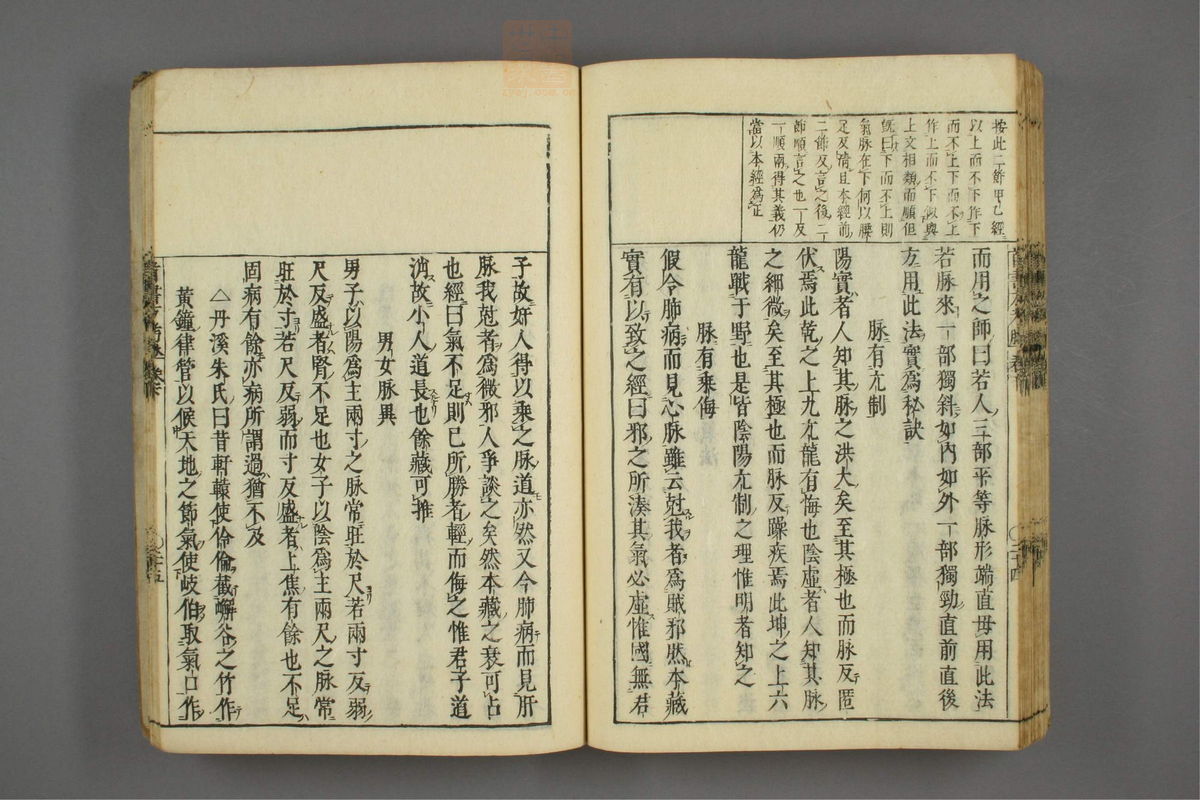 按此二節甲乙經
以上而不下作下
而不上下而不上
作上而不下似與
上文相類而順但
既曰下而不上則
氣脉在下何以腰
足反清且本經前
二節反言之後二
節順言之也一反
一順兩得其義仍
當以本經為正
而用之師曰若人三部平等脉形端直毋用此法
若脉來一部獨斜如內如外一部獨勁直前直後
方用此法實為秘訣
脉有亢制
陽實者人知其脉之洪大矣至其極也而脉反匿
伏焉此乾之上九亢龍有悔也陰虛者人知其脉
之細微矣至其極也而脉反躁疾焉此坤之上六
龍戰于野也是皆陰陽亢制之理惟明者知之
脉有乘侮
假令肺病而見心脉雖云尅我者為賊邪然本藏
實有以致之經曰邪之所湊其氣必虛惟國無君
子故奸人得以乘之脉道亦然又令肺病而見肝
脉我尅者為微邪人爭談之矣然本藏之衰可占
也經曰氣不足則已所勝者輕而侮之惟君子道
消故小人道長也餘藏可推
男女脉異
男子以陽為主兩寸之脉常旺於尺若兩寸反弱
尺反盛者腎不足也女子以陰為主兩尺之脉常
旺於寸若尺反弱而寸反盛者上焦有餘也不足
固病有餘亦病所謂過猶不及
△丹溪朱氏曰昔軒轅使伶倫截嶰谷之竹作
黃鐘律管以候天地之節氣使岐伯取氣口作